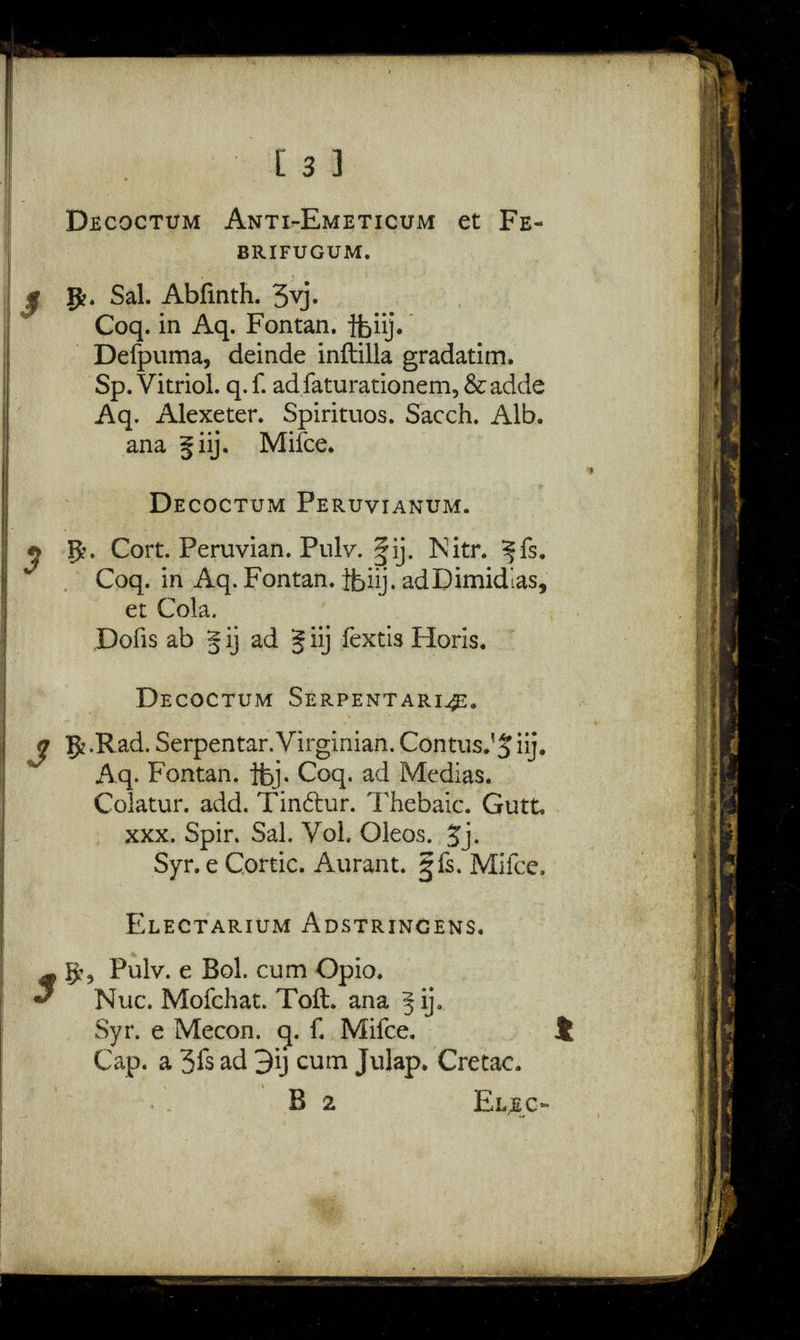 [ 3 ]
Decoctum Anti-Emeticum et Fe-
brifugum.
℞. Sal. Abſinth. ʒvj.
Coq. in Aq. Fontan. ℔iij.
Deſpuma, deinde inſtilla gradatim.
Sp. Vitriol. q. ſ. ad ſaturationem, & adde
Aq. Alexeter. Spirituos. Sacch. Alb.
ana ℥iij. Miſce.
Decoctum Peruvianum.
℞. Cort. Peruvian. Pulv. ℥ij. Nitr. ℥ſs.
Coq. in Aq. Fontan. ℔iij. ad Dimidias,
et Cola.
Doſis ab ℥ij ad ℥iij ſextis Horis.
Decoctum Serpentariæ.
℞. Rad. Serpentar. Virginian. Contus. ʒiij.
Aq. Fontan. ℔j. Coq. ad Medias.
Colatur. add. Tinctur. Thebaic. Gutt.
xxx. Spir. Sal. Vol. Oleos. ʒj.
Syr. e Cortic. Aurant. ℥ſs. Miſce.
Electarium Adstringens.
℞, Pulv. e Bol. cum Opio.
Nuc. Moſchat. Toſt. ana ℥ij.
Syr. e Mecon. q. ſ. Miſce.
Cap. a ʒſs ad ℈ij cum Julap. Cretac.
B 2 Elec-